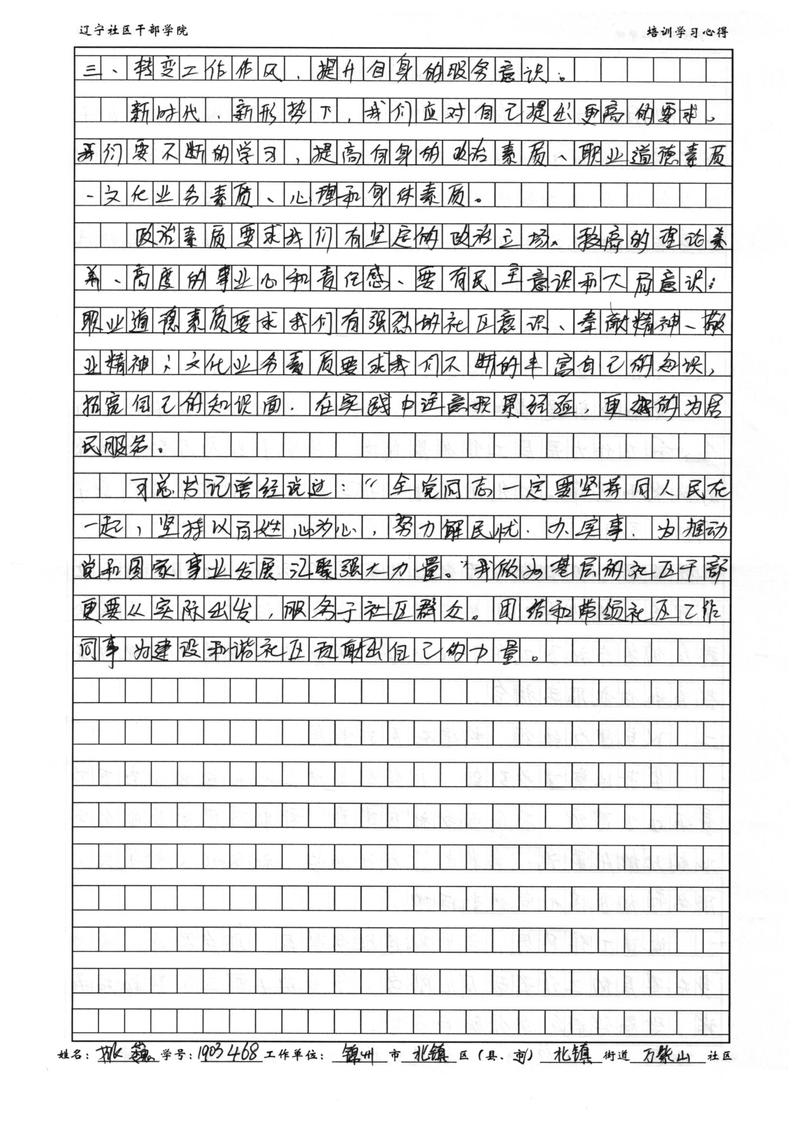 辽宁社区干部学院 培训学习心得
三、转变工作作风，提升自身的服务意识。
新时代，新形势下，我们应对自己提出更高的要求，
我们要不断的学习，提高自身的政治素质、职业道德素质
、文化业务素质、心理和身体素质。
政治素质要求我们有坚定的政治立场、程序的理论素
养、高度的事业心和责任感、要有民主意识和大局意识；
职业道德素质要求我们有强烈的社区意识、奉献精神、敬
业精神；文化业务素质要求我们不断的丰富自己的知识，
拓宽自己的知识面．在实践中注意积累经验，更好的为居
民服务。
习总书记曾经说过：“全党同志一定要坚持同人民在
一起，坚持以百姓心为心，努力解民忧．办实事．为推动
党和国家事业发展汇聚强大力量。”我做为基层的社区干部
更要从实际出发，服务于社区群众。团结和带领社区工作
同事为建设和谐社区贡献出自己的力量。
姓名： 学号：1903468 工作单位：锦州 市 北镇 区（县、市） 北镇 街道 万紫山 社区